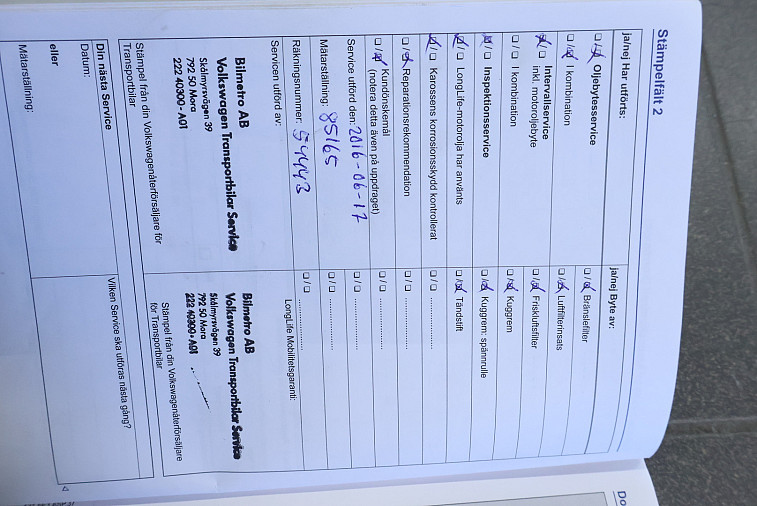 Stämpelfält 2
ja/nej Har utförts:
☐/☒ Oljebytesservice
☐/☒ I kombination
☒/☐ Intervallservice
inkl. motoroljebyte
☐/☐ I kombination
☒/☐ Inspektionsservice
☒/☐ LongLife-motorolja har använts
☒/☐ Karossens korrosionsskydd kontrollerat
☐/☒ Reparationsrekommendation
☐/☒ Kundönskemål
(notera detta även på uppdraget)
Service utförd den: 2016-06-17
Mätarställning: 85165
Räkningsnummer: 54443
Servicen utförd av:
Bilmetro AB
Volkswagen Transportbilar Service
Skålmyrsvägen 39
792 50 Mora
222 40300-A01
Stämpel från din Volkswagenåterförsäljare för
Transportbilar
ja/nej Byte av:
☐/☒ Bränslefilter
☐/☒ Luftfilterinsats
☐/☒ Friskluftsfilter
☐/☒ Kuggrem
☐/☒ Kuggrem: spännrulle
☐/☒ Tändstift
☐/☐ ....................
☐/☐ ....................
☐/☐ ....................
☐/☐ ....................
☐/☐ ....................
☐/☐ ....................
LongLife Mobilitetsgaranti:
Bilmetro AB
Volkswagen Transportbilar Service
Skålmyrsvägen 39
792 50 Mora
222 40300-A01
Stämpel från din Volkswagenåterförsäljare
för Transportbilar
Din nästa Service
Datum:
eller
Mätarställning:
Vilken Service ska utföras nästa gång?
Do